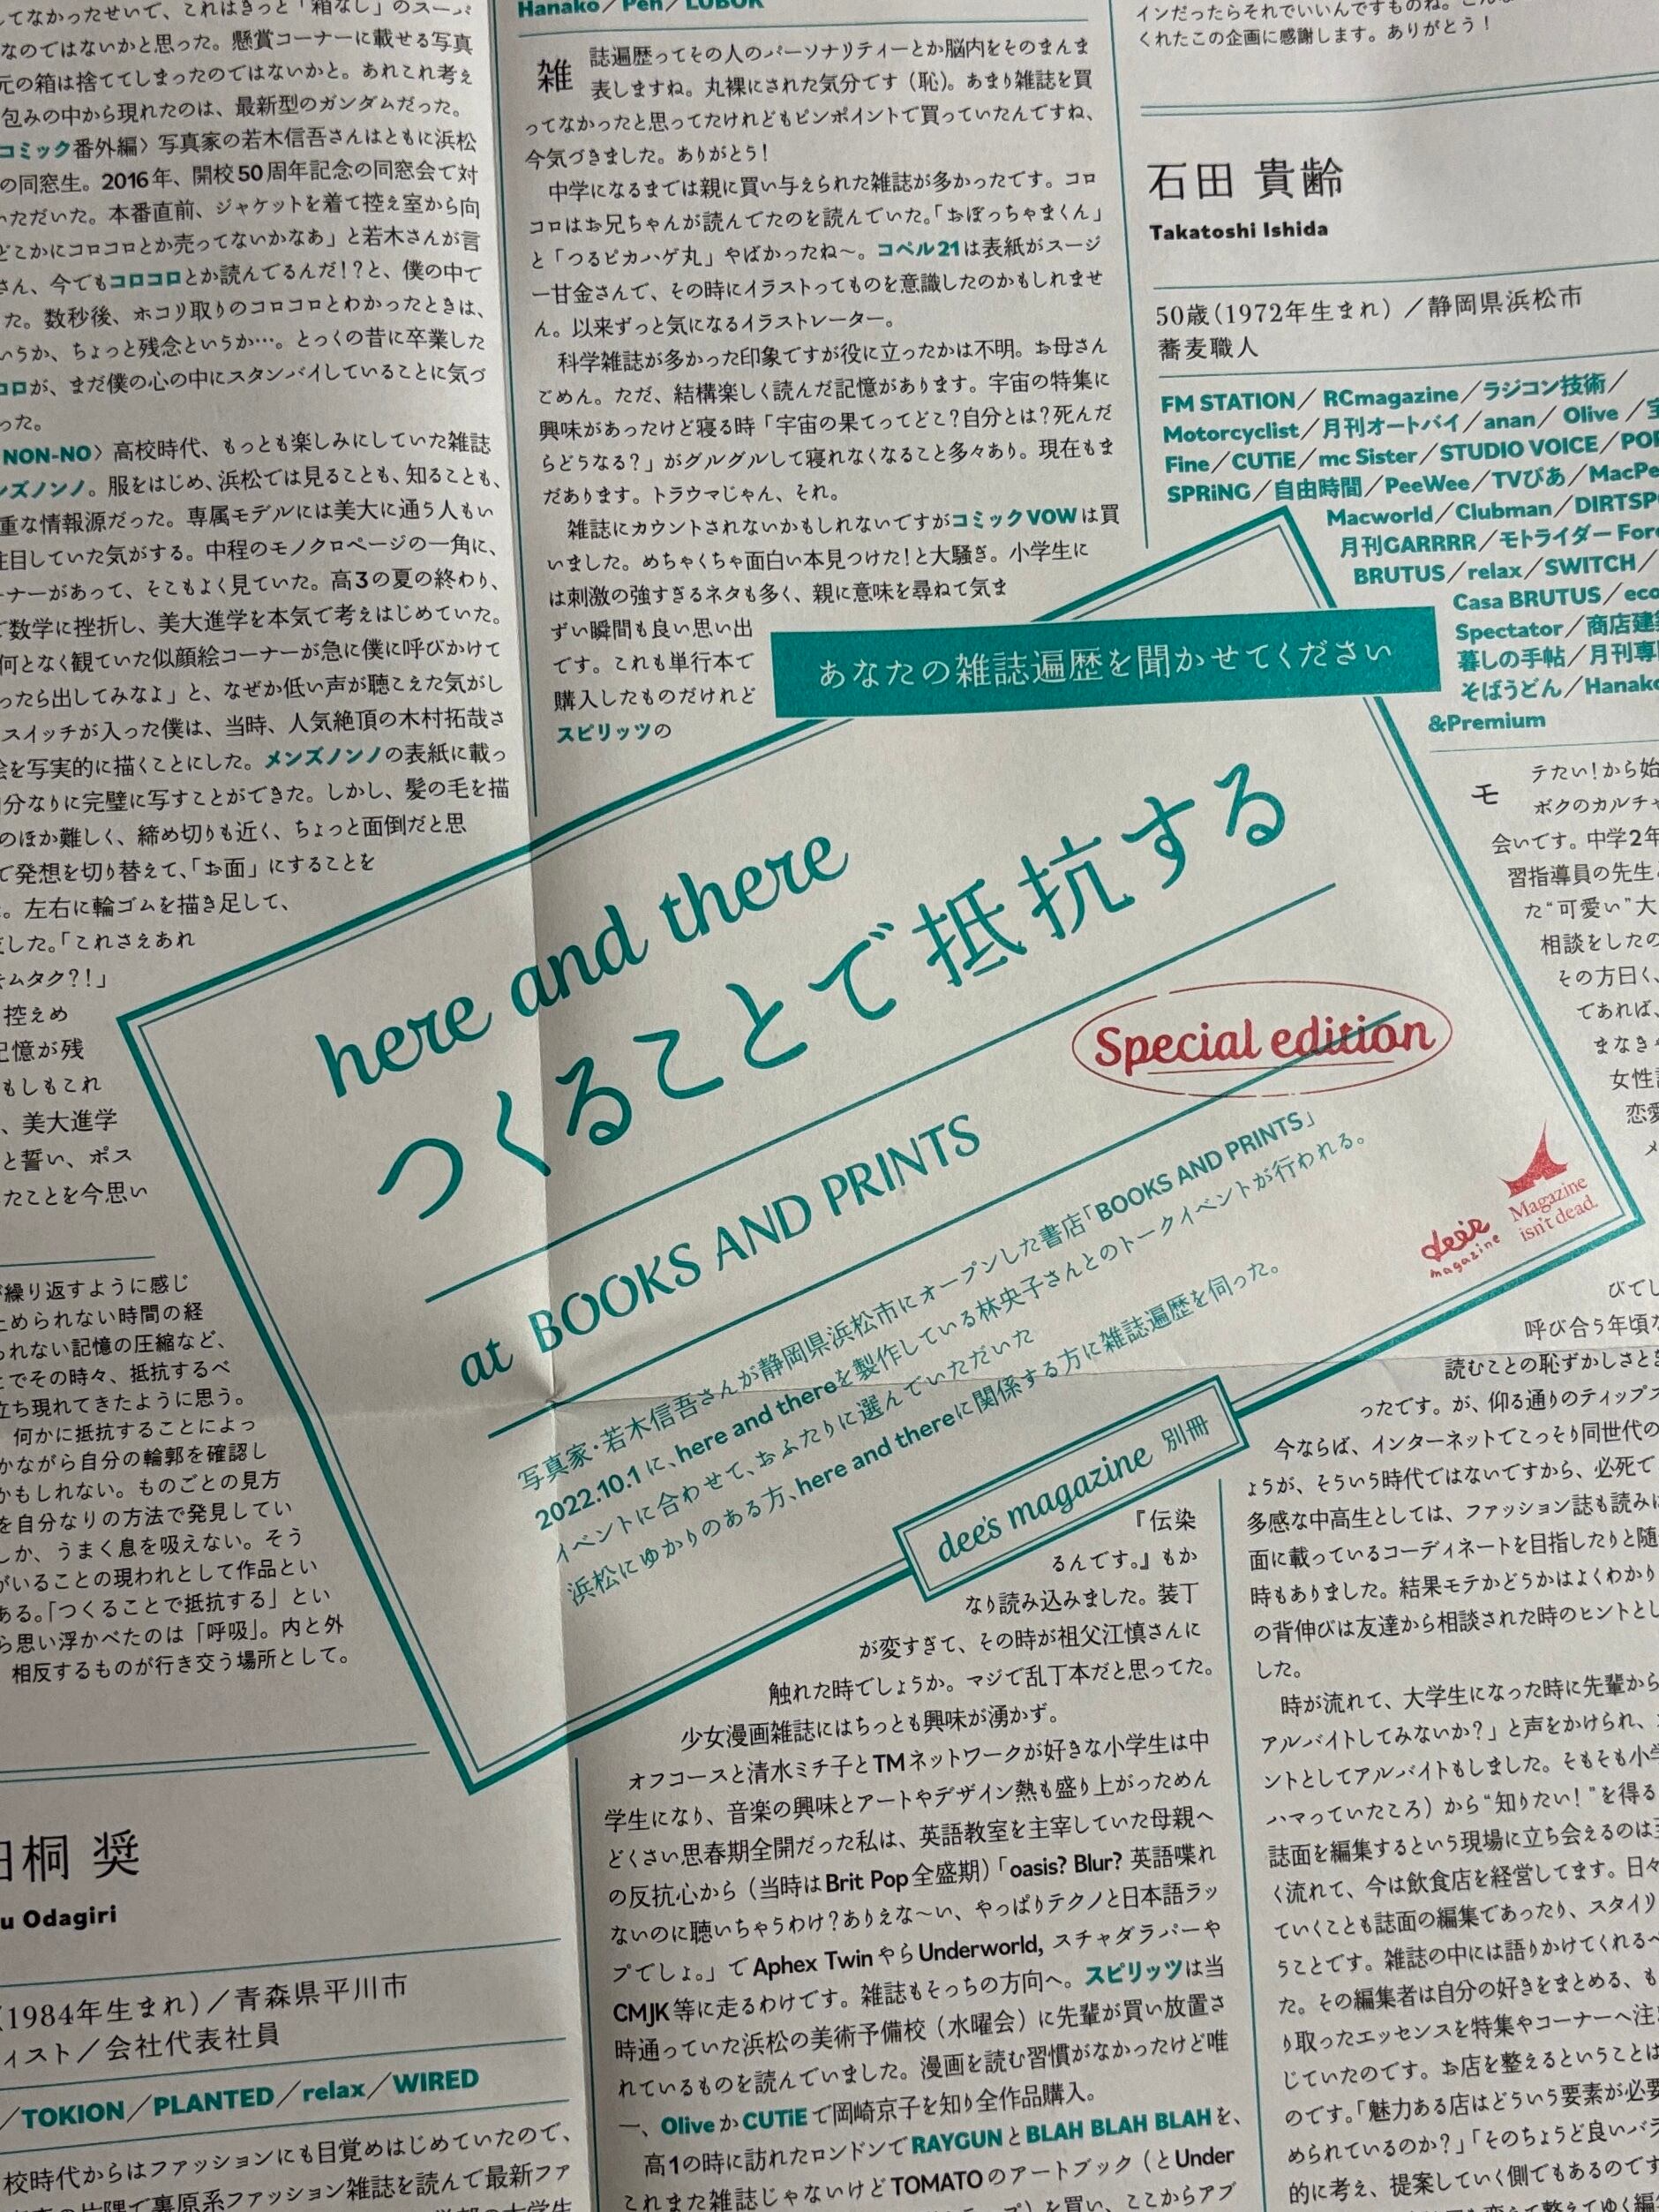 してなかったせいで、これはきっと「箱なし」のスーパ
なのではないかと思った。懸賞コーナーに載せる写真
元の箱は捨ててしまったのではないかと。あれこれ考え
包みの中から現れたのは、最新型のガンダムだった。
コミック番外編〉写真家の若木信吾さんはともに浜松
の同窓生。2016年、開校50周年記念の同窓会で対
いただいた。本番直前、ジャケットを着て控え室から向
どこかにコロコロとか売ってないかなあ」と若木さんが言
さん、今でもコロコロとか読んでるんだ!?と、僕の中で
た。数秒後、ホコリ取りのコロコロとわかったときは、
いうか、ちょっと残念というか…。とっくの昔に卒業した
コロが、まだ僕の心の中にスタンバイしていることに気づ
った。
NON-NO〉高校時代、もっとも楽しみにしていた雑誌
ンズノンノ。服をはじめ、浜松では見ることも、知ることも、
重な情報源だった。専属モデルには美大に通う人もい
注目していた気がする。中程のモノクロページの一角に、
ーナーがあって、そこもよく見ていた。高3の夏の終わり、
で数学に挫折し、美大進学を本気で考えはじめていた。
何となく観ていた似顔絵コーナーが急に僕に呼びかけて
ったら出してみなよ」と、なぜか低い声が聴こえた気がし
スイッチが入った僕は、当時、人気絶頂の木村拓哉さ
絵を写実的に描くことにした。メンズノンノの表紙に載っ
自分なりに完璧に写すことができた。しかし、髪の毛を描
のほか難しく、締め切りも近く、ちょっと面倒だと思
で発想を切り替えて、「お面」にすることを
。左右に輪ゴムを描き足して、
した。「これさえあれ
キムタク?!」
控えめ
記憶が残
もしもこれ
、美大進学
と誓い、ポス
たことを今思い
が繰り返すように感じ
止められない時間の経
られない記憶の圧縮など、
とでその時々、抵抗するべ
立ち現れてきたように思う。
何かに抵抗することによっ
かながら自分の輪郭を確認し
かもしれない。ものごとの見方
を自分なりの方法で発見してい
しか、うまく息を吸えない。そう
がいることの現われとして作品とい
ある。「つくることで抵抗する」とい
ら思い浮かべたのは「呼吸」。内と外
相反するものが行き交う場所として。
田桐 奨
u Odagiri
(1984年生まれ)／青森県平川市
ィスト／会社代表社員
／TOKION／PLANTED／relax／WIRED
校時代からはファッションにも目覚めはじめていたので、
の片隅で裏原系ファッション雑誌を読んで最新ファ
Hanako／Pen／LUBOK
雑誌遍歴ってその人のパーソナリティーとか脳内をそのまんま
表しますね。丸裸にされた気分です（恥）。あまり雑誌を買
ってなかったと思ってたけれどもピンポイントで買っていたんですね、
今気づきました。ありがとう！
中学になるまでは親に買い与えられた雑誌が多かったです。コロ
コロはお兄ちゃんが読んでたのを読んでいた。「おぼっちゃまくん」
と「つるピカハゲ丸」やばかったね〜。コペル21は表紙がスージ
ー甘金さんで、その時にイラストってものを意識したのかもしれませ
ん。以来ずっと気になるイラストレーター。
科学雑誌が多かった印象ですが役に立ったかは不明。お母さん
ごめん。ただ、結構楽しく読んだ記憶があります。宇宙の特集に
興味があったけど寝る時「宇宙の果てってどこ?自分とは?死んだ
らどうなる?」がグルグルして寝れなくなること多々あり。現在もま
だあります。トラウマじゃん、それ。
雑誌にカウントされないかもしれないですがコミックVOWは買
いました。めちゃくちゃ面白い本見つけた！と大騒ぎ。小学生に
は刺激の強すぎるネタも多く、親に意味を尋ねて気ま
ずい瞬間も良い思い出
です。これも単行本で
購入したものだけれど
スピリッツの
あなたの雑誌遍歴を聞かせてください
here and there
つくることで抵抗する
Special edition
at BOOKS AND PRINTS
写真家・若木信吾さんが静岡県浜松市にオープンした書店「BOOKS AND PRINTS」
2022.10.1に、here and thereを製作している林央子さんとのトークイベントが行われる。
イベントに合わせて、おふたりに選んでいただいた
浜松にゆかりのある方、here and thereに関係する方に雑誌遍歴を伺った。
dee's magazine
Magazine
isn't dead.
dee's magazine 別冊
『伝染
るんです。』もか
なり読み込みました。装丁
が変すぎて、その時が祖父江慎さんに
触れた時でしょうか。マジで乱丁本だと思ってた。
少女漫画雑誌にはちっとも興味が湧かず。
オフコースと清水ミチ子とTMネットワークが好きな小学生は中
学生になり、音楽の興味とアートやデザイン熱も盛り上がっためん
どくさい思春期全開だった私は、英語教室を主宰していた母親へ
の反抗心から（当時はBrit Pop全盛期）「oasis? Blur? 英語喋れ
ないのに聴いちゃうわけ?ありえな〜い、やっぱりテクノと日本語ラッ
プでしょ。」でAphex TwinやらUnderworld, スチャダラパーや
CMJK等に走るわけです。雑誌もそっちの方向へ。スピリッツは当
時通っていた浜松の美術予備校（水曜会）に先輩が買い放置さ
れているものを読んでいました。漫画を読む習慣がなかったけど唯
一、OliveかCUTiEで岡崎京子を知り全作品購入。
高1の時に訪れたロンドンでRAYGUNとBLAH BLAH BLAHを、
これまた雑誌じゃないけどTOMATOのアートブック（とUnder
を買い、ここからアブ
インだったらそれでいいんですものね。
くれたこの企画に感謝します。ありがとう！
石田 貴齢
Takatoshi Ishida
50歳（1972年生まれ）／静岡県浜松市
蕎麦職人
FM STATION／RCmagazine／ラジコン技術／
Motorcyclist／月刊オートバイ／anan／Olive／宝
Fine／CUTiE／mc Sister／STUDIO VOICE／POP
SPRiNG／自由時間／PeeWee／TVぴあ／MacPe
Macworld／Clubman／DIRTSPO
月刊GARRRR／モトライダー Forc
BRUTUS／relax／SWITCH／
Casa BRUTUS／eco
Spectator／商店建築
暮しの手帖／月刊専門
そばうどん／Hanako
&Premium
モテたい！から始
ボクのカルチャ
会いです。中学2年
習指導員の先生
た“可愛い”大
相談をしたの
その方曰く、
であれば、
まなきゃ
女性誌
恋愛
メ
びでし
呼び合う年頃な
読むことの恥ずかしさとき
ったです。が、仰る通りのティップス
今ならば、インターネットでこっそり同世代の
ょうが、そういう時代ではないですから、必死で
多感な中高生としては、ファッション誌も読みに
面に載っているコーディネートを目指したりと随
時もありました。結果モテかどうかはよくわかり
の背伸びは友達から相談された時のヒントとし
した。
時が流れて、大学生になった時に先輩から
アルバイトしてみないか?」と声をかけられ、
ントとしてアルバイトもしました。そもそも小学
ハマっていたころ）から“知りたい！”を得る
誌面を編集するという現場に立ち会えるのは至
く流れて、今は飲食店を経営してます。日々
ていくことも誌面の編集であったり、スタイリ
うことです。雑誌の中には語りかけてくれるペ
た。その編集者は自分の好きをまとめる、も
り取ったエッセンスを特集やコーナーへ注
じていたのです。お店を整えるということは
のです。「魅力ある店はどういう要素が必要
められているのか?」「そのちょうど良いバラ
的に考え、提案していく側でもあるのです